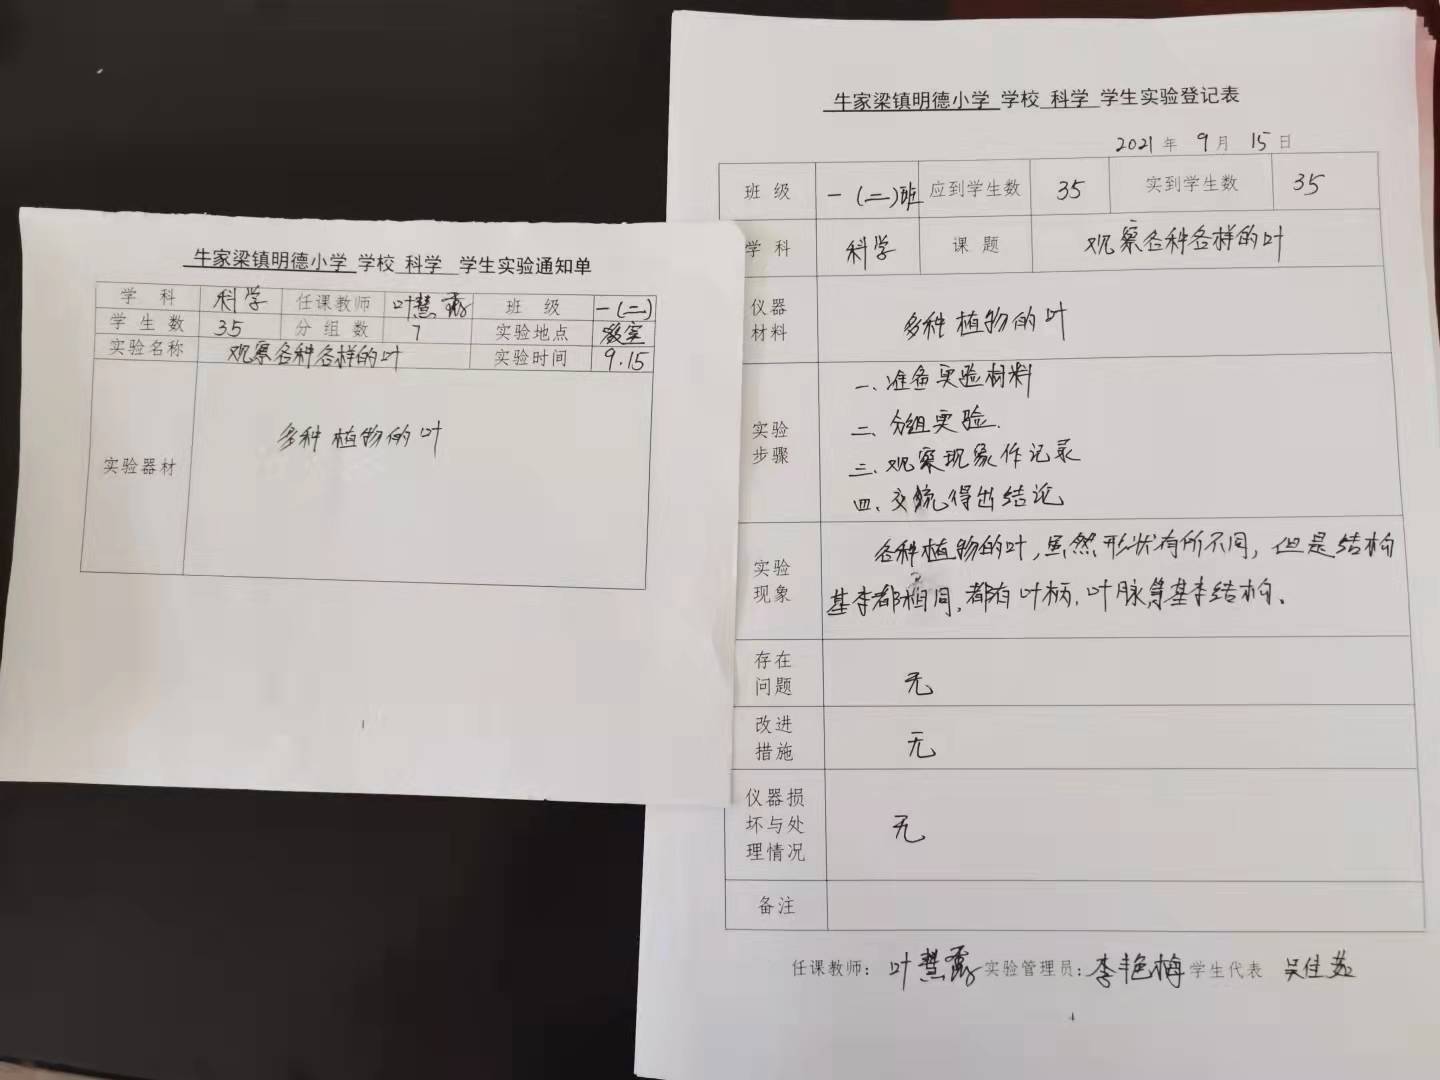 牛家梁镇明德小学 学校 科学 学生实验通知单
学科 科学 任课教师 叶慧 班级 一(二)
学生数 35 分组数 7 实验地点 教室
实验名称 观察各种各样的叶 实验时间 9.15
实验器材 多种植物的叶
1
牛家梁镇明德小学 学校 科学 学生实验登记表
2021年 9月 15日
班级 一(二)班 应到学生数 35 实到学生数 35
学科 科学 课题 观察各种各样的叶
仪器
材料 多种植物的叶
实验
步骤
一、准备实验材料
二、分组实验.
三、观察现象作记录
四、交流得出结论
实验
现象
各种植物的叶,虽然形状有所不同,但是结构
基本都相同,都有叶柄,叶脉等基本结构。
存在
问题 无
改进
措施 无
仪器损
坏与处
理情况 无
备注
任课教师: 叶慧 实验管理员: 李艳梅 学生代表 吴佳